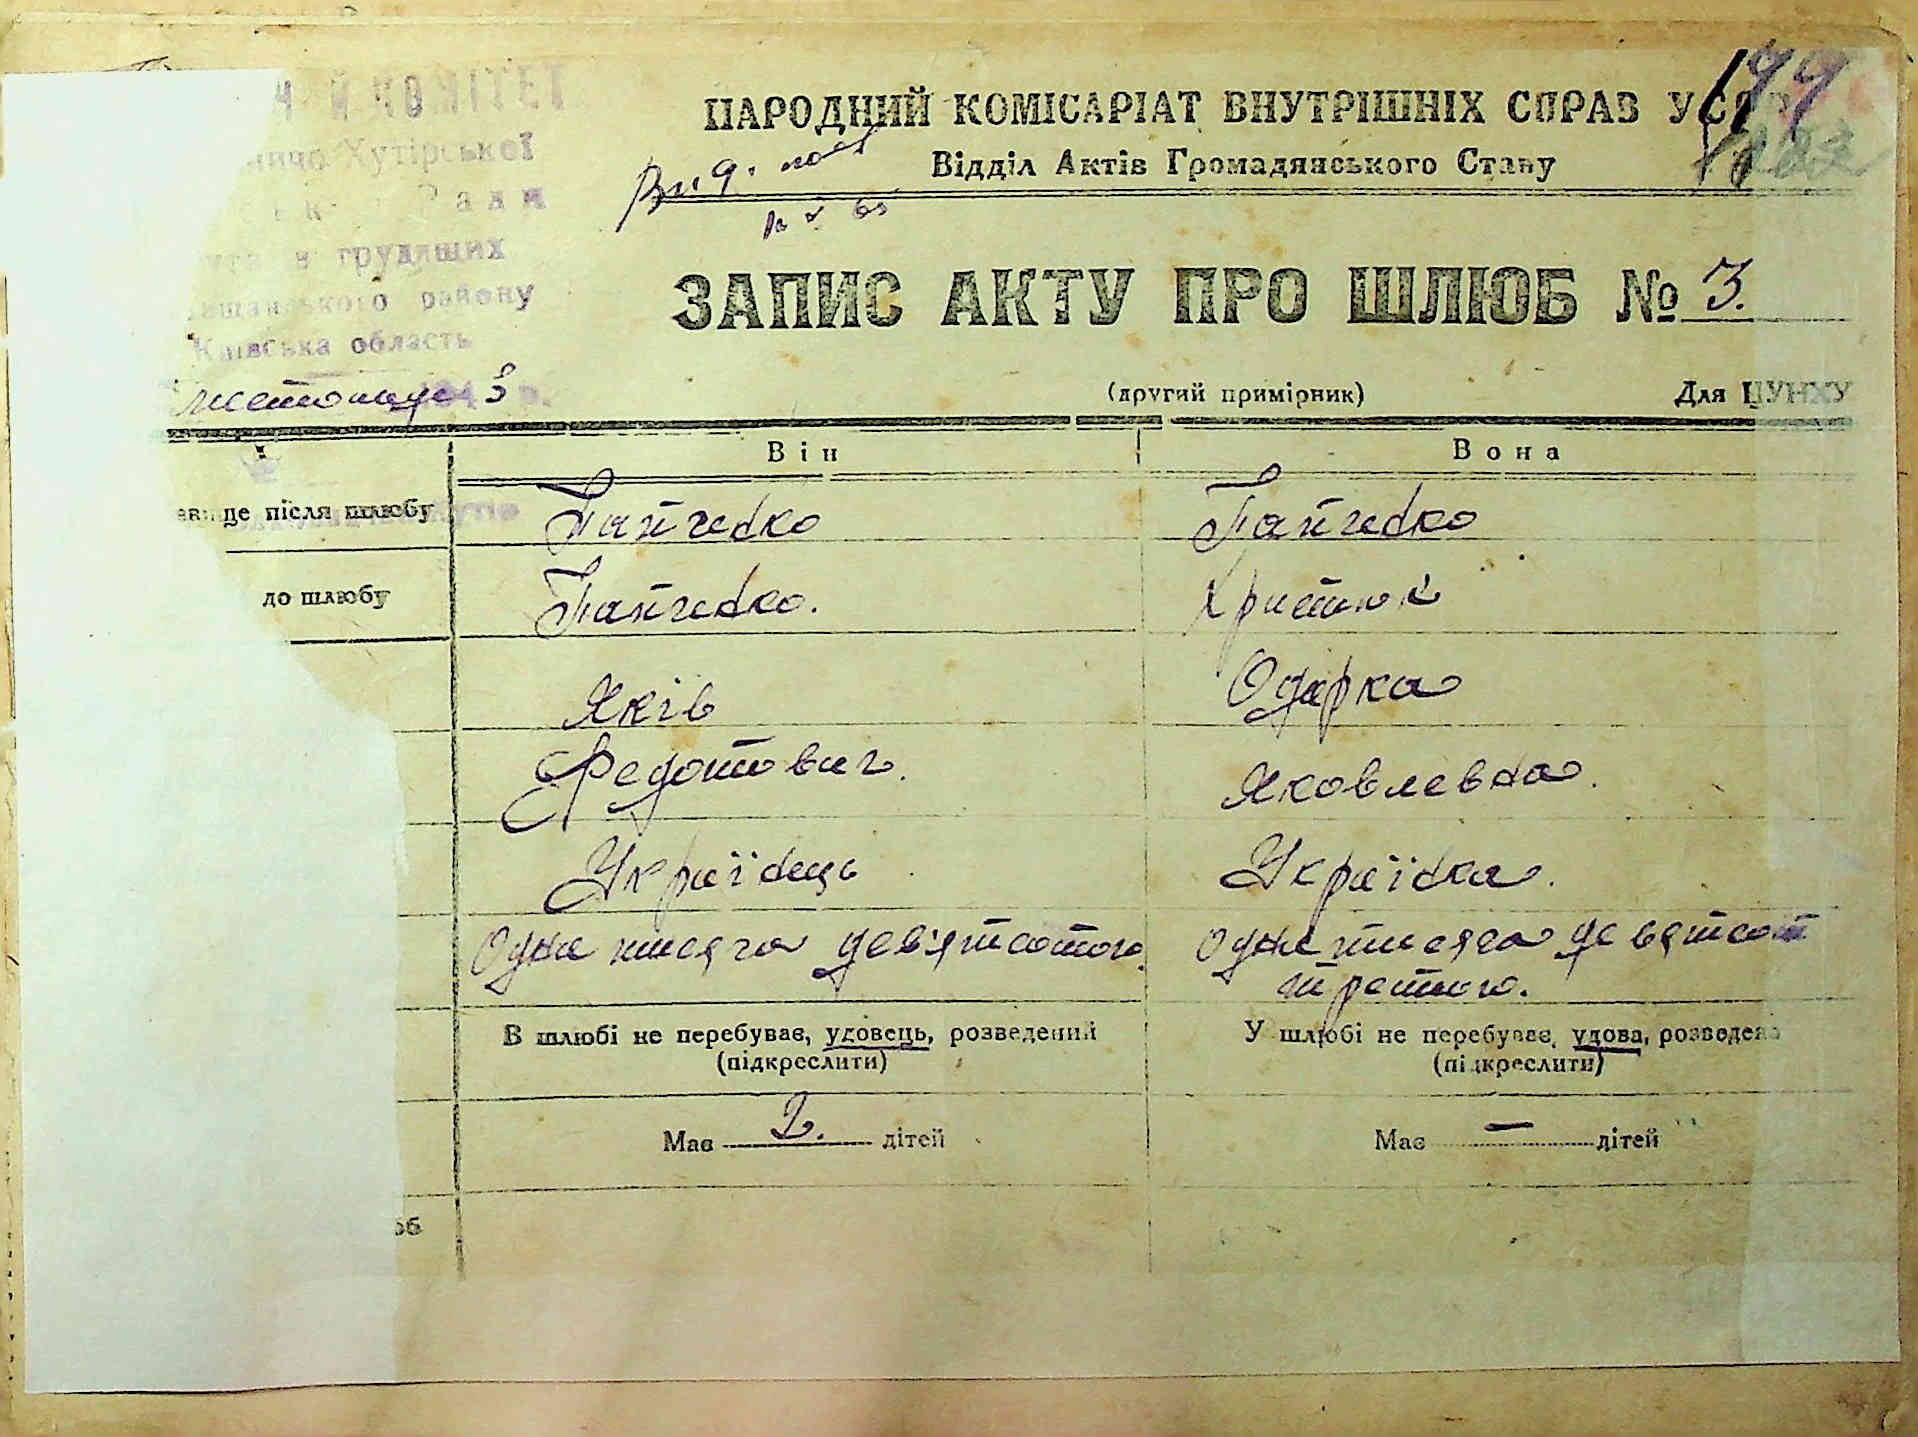 КОМІТЕТ
Хутірської
Ради
трудящих
району
Київська область
НАРОДНИЙ КОМІСАРІАТ ВНУТРІШНІХ СПРАВ УСРР
Відділ Актів Громадянського Стану
ЗАПИС АКТУ ПРО ШЛЮБ № 3.
листопада 3
(другий примірник) Для ЦУНХУ
Він Вона
після шлюбу Панченко Панченко
до шлюбу Панченко. Христюк
Яків Одарка
Федотович. Яковлевна.
Українець Українка.
Одна тисяча дев'ятсотого. Одна тисяча девятсот
третього.
В шлюбі не перебуває, удовець, розведений У шлюбі не перебуває, удова, розведена
(підкреслити) (підкреслити)
Має 2. дітей Має — дітей